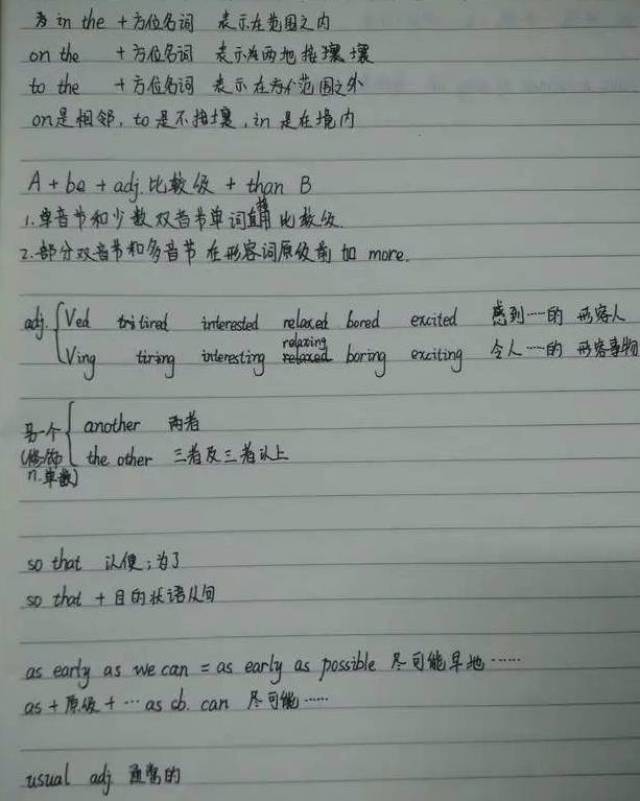 in the +方位名词 表示在范围之内
on the +方位名词 表示为两地接壤
to the +方位名词 表示在某个范围之外
on是相邻，to是不接壤，in是在境内
A + be + adj.比较级 + than B
1.单音节和少数双音节单词直接用比较级
2.部分双音节和多音节在形容词原级前加more.
adj. { Ved tired interested relaxed bored excited 感到……的 形容人
Ving tiring interesting relaxing boring exciting 令人……的 形容事物
另一个 { another 两者
the other 三者及三者以上
n.单数)
so that 以便；为了
so that + 目的状语从句
as early as we can = as early as possible 尽可能早地……
as + 原级 + … as sb. can 尽可能……
usual adj. 通常的